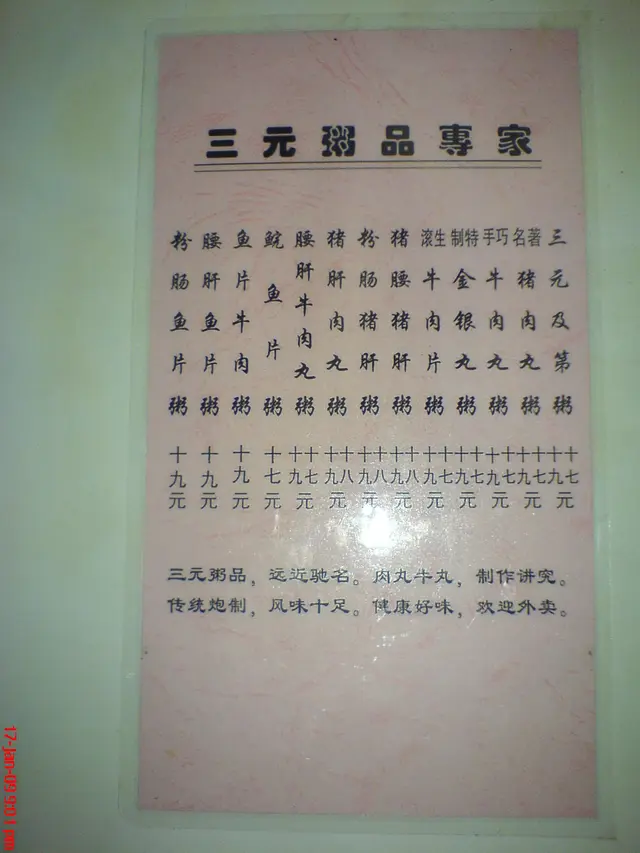 三元粥品專家
三元及第粥 十七十九元
著名猪肉丸粥 十七十九元
巧手牛肉丸粥 十七十九元
特制金银丸粥 十七十九元
生滚牛肉片粥 十七十九元
猪腰猪肝粥 十八十九元
粉肠猪肝粥 十八十九元
猪肝肉丸粥 十八十九元
腰肝牛肉丸粥 十七十九元
鲩鱼片粥 十七元
鱼片牛肉粥 十九元
腰肝鱼片粥 十九元
粉肠鱼片粥 十九元
三元粥品，远近驰名。肉丸牛丸，制作讲究。
传统炮制，风味十足。健康好味，欢迎外卖。
17-Jan-09 9:01 pm